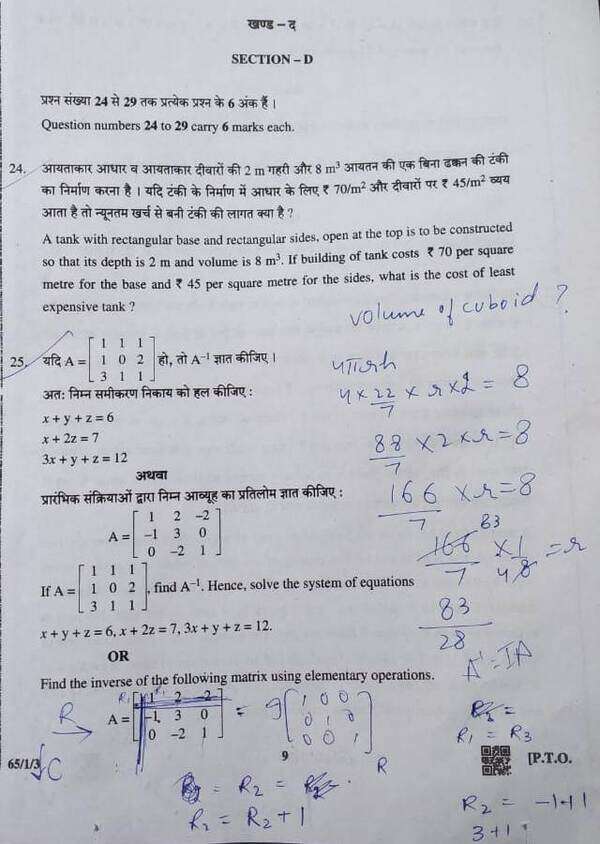 खण्ड – द
SECTION – D
प्रश्न संख्या 24 से 29 तक प्रत्येक प्रश्न के 6 अंक हैं ।
Question numbers 24 to 29 carry 6 marks each.
24. आयताकार आधार व आयताकार दीवारों की 2 m गहरी और 8 m³ आयतन की एक बिना ढक्कन की टंकी
का निर्माण करना है । यदि टंकी के निर्माण में आधार के लिए ₹ 70/m² और दीवारों पर ₹ 45/m² व्यय
आता है तो न्यूनतम खर्च से बनी टंकी की लागत क्या है ?
A tank with rectangular base and rectangular sides, open at the top is to be constructed
so that its depth is 2 m and volume is 8 m³. If building of tank costs ₹ 70 per square
metre for the base and ₹ 45 per square metre for the sides, what is the cost of least
expensive tank ?
volume of cuboid ?
25. यदि A = [1 1 1
1 0 2
3 1 1] हो, तो A⁻¹ ज्ञात कीजिए ।
अतः निम्न समीकरण निकाय को हल कीजिए :
x + y + z = 6
x + 2z = 7
3x + y + z = 12
अथवा
प्रारंभिक संक्रियाओं द्वारा निम्न आव्यूह का प्रतिलोम ज्ञात कीजिए :
A = [1 2 –2
–1 3 0
0 –2 1]
If A = [1 1 1
1 0 2
3 1 1], find A⁻¹. Hence, solve the system of equations
x + y + z = 6, x + 2z = 7, 3x + y + z = 12.
OR
Find the inverse of the following matrix using elementary operations.
A = [1 2 –2
–1 3 0
0 –2 1]
4πrh
4 × 22/7 × r × 2 = 8
88/7 × 2 × r = 8
166/7 × r = 8
83
166/7 × 1/48 = r
83/28
A¹ = IA
R₁
R
= 9 [1 0 0
0 1 0
0 0 1]
R₁ = R₃
65/1/3
C
9
[P.T.O.
R
= R₂ =
R₂ = R₂ + 1
R₂ = –1+1
3+1